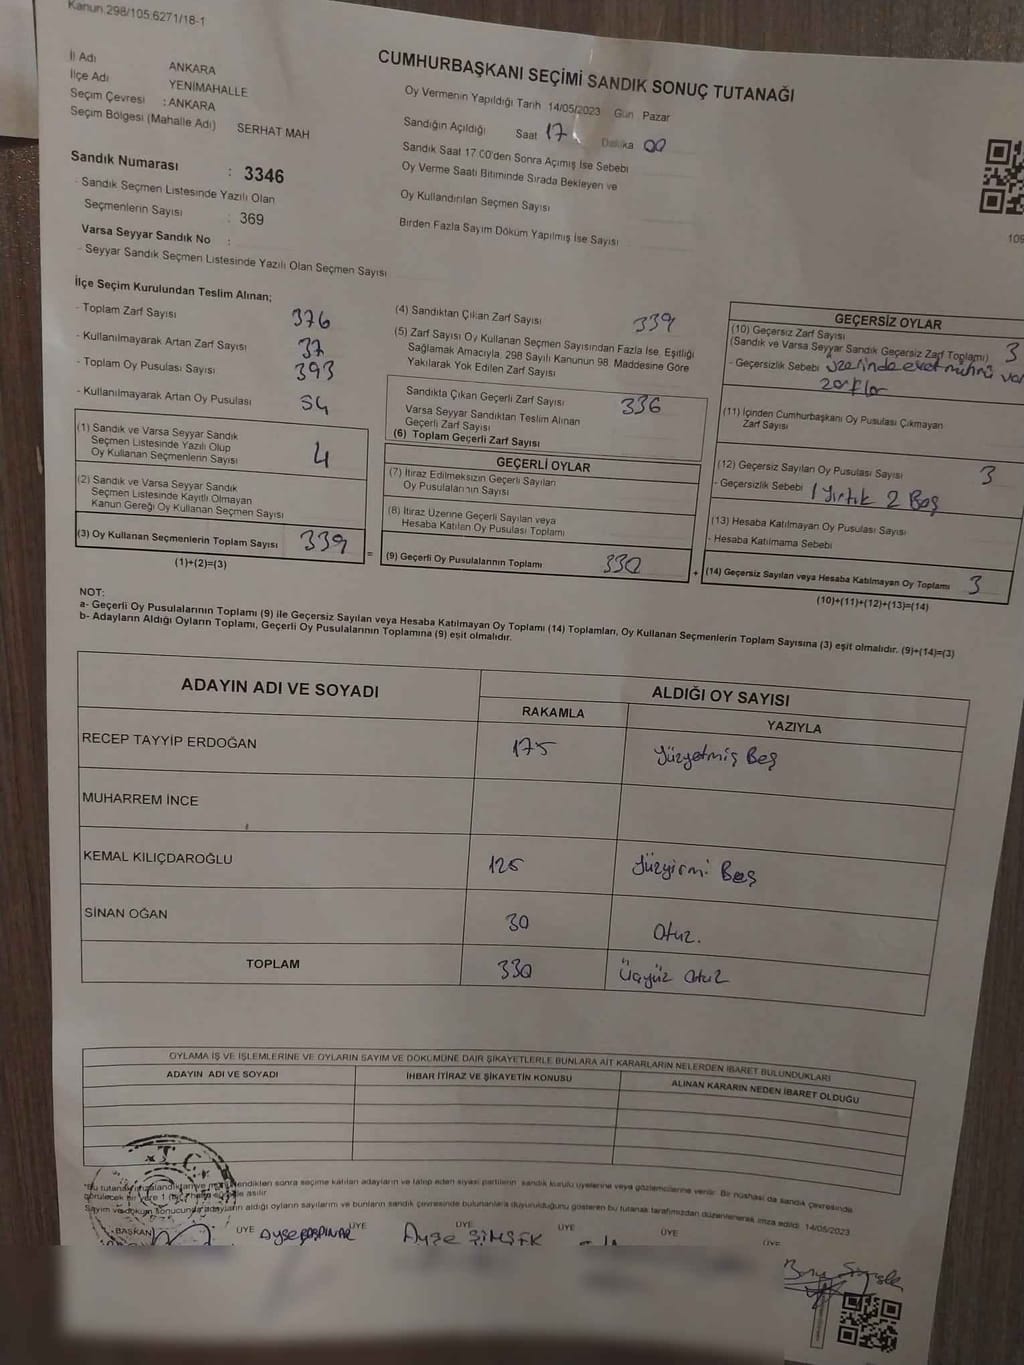 Kanun 298/105,6271/18-1
CUMHURBAŞKANI SEÇİMİ SANDIK SONUÇ TUTANAĞI
İl Adı ANKARA
İlçe Adı YENİMAHALLE
Seçim Çevresi : ANKARA
Seçim Bölgesi (Mahalle Adı) SERHAT MAH
Sandık Numarası : 3346
- Sandık Seçmen Listesinde Yazılı Olan
Seçmenlerin Sayısı : 369
Varsa Seyyar Sandık No :
- Seyyar Sandık Seçmen Listesinde Yazılı Olan Seçmen Sayısı
Oy Vermenin Yapıldığı Tarih 14/05/2023 Gün Pazar
Sandığın Açıldığı Saat 17 Dakika 00
Sandık Saat 17:00'den Sonra Açımış İse Sebebi
Oy Verme Saati Bitiminde Sırada Bekleyen ve
Oy Kullandırılan Seçmen Sayısı
Birden Fazla Sayım Döküm Yapılmış İse Sayısı
109
İlçe Seçim Kurulundan Teslim Alınan;
- Toplam Zarf Sayısı 376
- Kullanılmayarak Artan Zarf Sayısı 37
- Toplam Oy Pusulası Sayısı 393
- Kullanılmayarak Artan Oy Pusulası 54
(1) Sandık ve Varsa Seyyar Sandık
Seçmen Listesinde Yazılı Olup
Oy Kullanan Seçmenlerin Sayısı 4
(2) Sandık ve Varsa Seyyar Sandık
Seçmen Listesinde Kayıtlı Olmayan
Kanun Gereği Oy Kullanan Seçmen Sayısı
(3) Oy Kullanan Seçmenlerin Toplam Sayısı 339
(1)+(2)=(3)
=
(4) Sandıktan Çıkan Zarf Sayısı 339
(5) Zarf Sayısı Oy Kullanan Seçmen Sayısından Fazla İse, Eşitliği
Sağlamak Amacıyla, 298 Sayılı Kanunun 98. Maddesine Göre
Yakılarak Yok Edilen Zarf Sayısı
Sandıkta Çıkan Geçerli Zarf Sayısı 336
Varsa Seyyar Sandıktan Teslim Alınan
Geçerli Zarf Sayısı
(6) Toplam Geçerli Zarf Sayısı
GEÇERLİ OYLAR
(7) İtiraz Edilmeksizin Geçerli Sayılan
Oy Pusulalarının Sayısı
(8) İtiraz Üzerine Geçerli Sayılan veya
Hesaba Katılan Oy Pusulası Toplamı
(9) Geçerli Oy Pusulalarının Toplamı 330
+
GEÇERSİZ OYLAR
(10) Geçersiz Zarf Sayısı
(Sandık ve Varsa Seyyar Sandık Geçersiz Zarf Toplamı) 3
- Geçersizlik Sebebi üzerinde evet mührü var
zarflar
(11) İçinden Cumhurbaşkanı Oy Pusulası Çıkmayan
Zarf Sayısı
(12) Geçersiz Sayılan Oy Pusulası Sayısı 3
- Geçersizlik Sebebi 1 yırtık 2 Boş
(13) Hesaba Katılmayan Oy Pusulası Sayısı
- Hesaba Katılmama Sebebi
(14) Geçersiz Sayılan veya Hesaba Katılmayan Oy Toplamı 3
(10)+(11)+(12)+(13)=(14)
NOT:
a- Geçerli Oy Pusulalarının Toplamı (9) ile Geçersiz Sayılan veya Hesaba Katılmayan Oy Toplamı (14) Toplamları, Oy Kullanan Seçmenlerin Toplam Sayısına (3) eşit olmalıdır. (9)+(14)=(3)
b- Adayların Aldığı Oyların Toplamı, Geçerli Oy Pusulalarının Toplamına (9) eşit olmalıdır.
ADAYIN ADI VE SOYADI ALDIĞI OY SAYISI
RAKAMLA YAZIYLA
RECEP TAYYİP ERDOĞAN 175 Yüzyetmiş Beş
MUHARREM İNCE
KEMAL KILIÇDAROĞLU 125 Yüzyirmi Beş
SİNAN OĞAN 30 Otuz.
TOPLAM 330 Üçyüz otuz
OYLAMA İŞ VE İŞLEMLERİNE VE OYLARIN SAYIM VE DÖKÜMÜNE DAİR ŞİKAYETLERLE BUNLARA AİT KARARLARIN NELERDEN İBARET BULUNDUKLARI
ADAYIN ADI VE SOYADI İHBAR İTİRAZ VE ŞİKAYETİN KONUSU ALINAN KARARIN NEDEN İBARET OLDUĞU
T.C.
sonra seçime katılan adayların ve talep eden siyasi partilerin sandık kurulu üyelerine veya gözlemcilerine verilir. Bir nüshası da sandık çevresinde
görülecek bir yere asılır
Sayım ve döküm sonucunda adayların aldığı oyların sayılarını ve bunların sandık çevresinde bulunanlara duyurulduğunu gösteren bu tutanak tarafımızdan düzenlenerek imza edildi. 14/05/2023
BAŞKAN ÜYE ÜYE ÜYE ÜYE ÜYE ÜYE
Ayşe Ayşe ŞİMŞEK